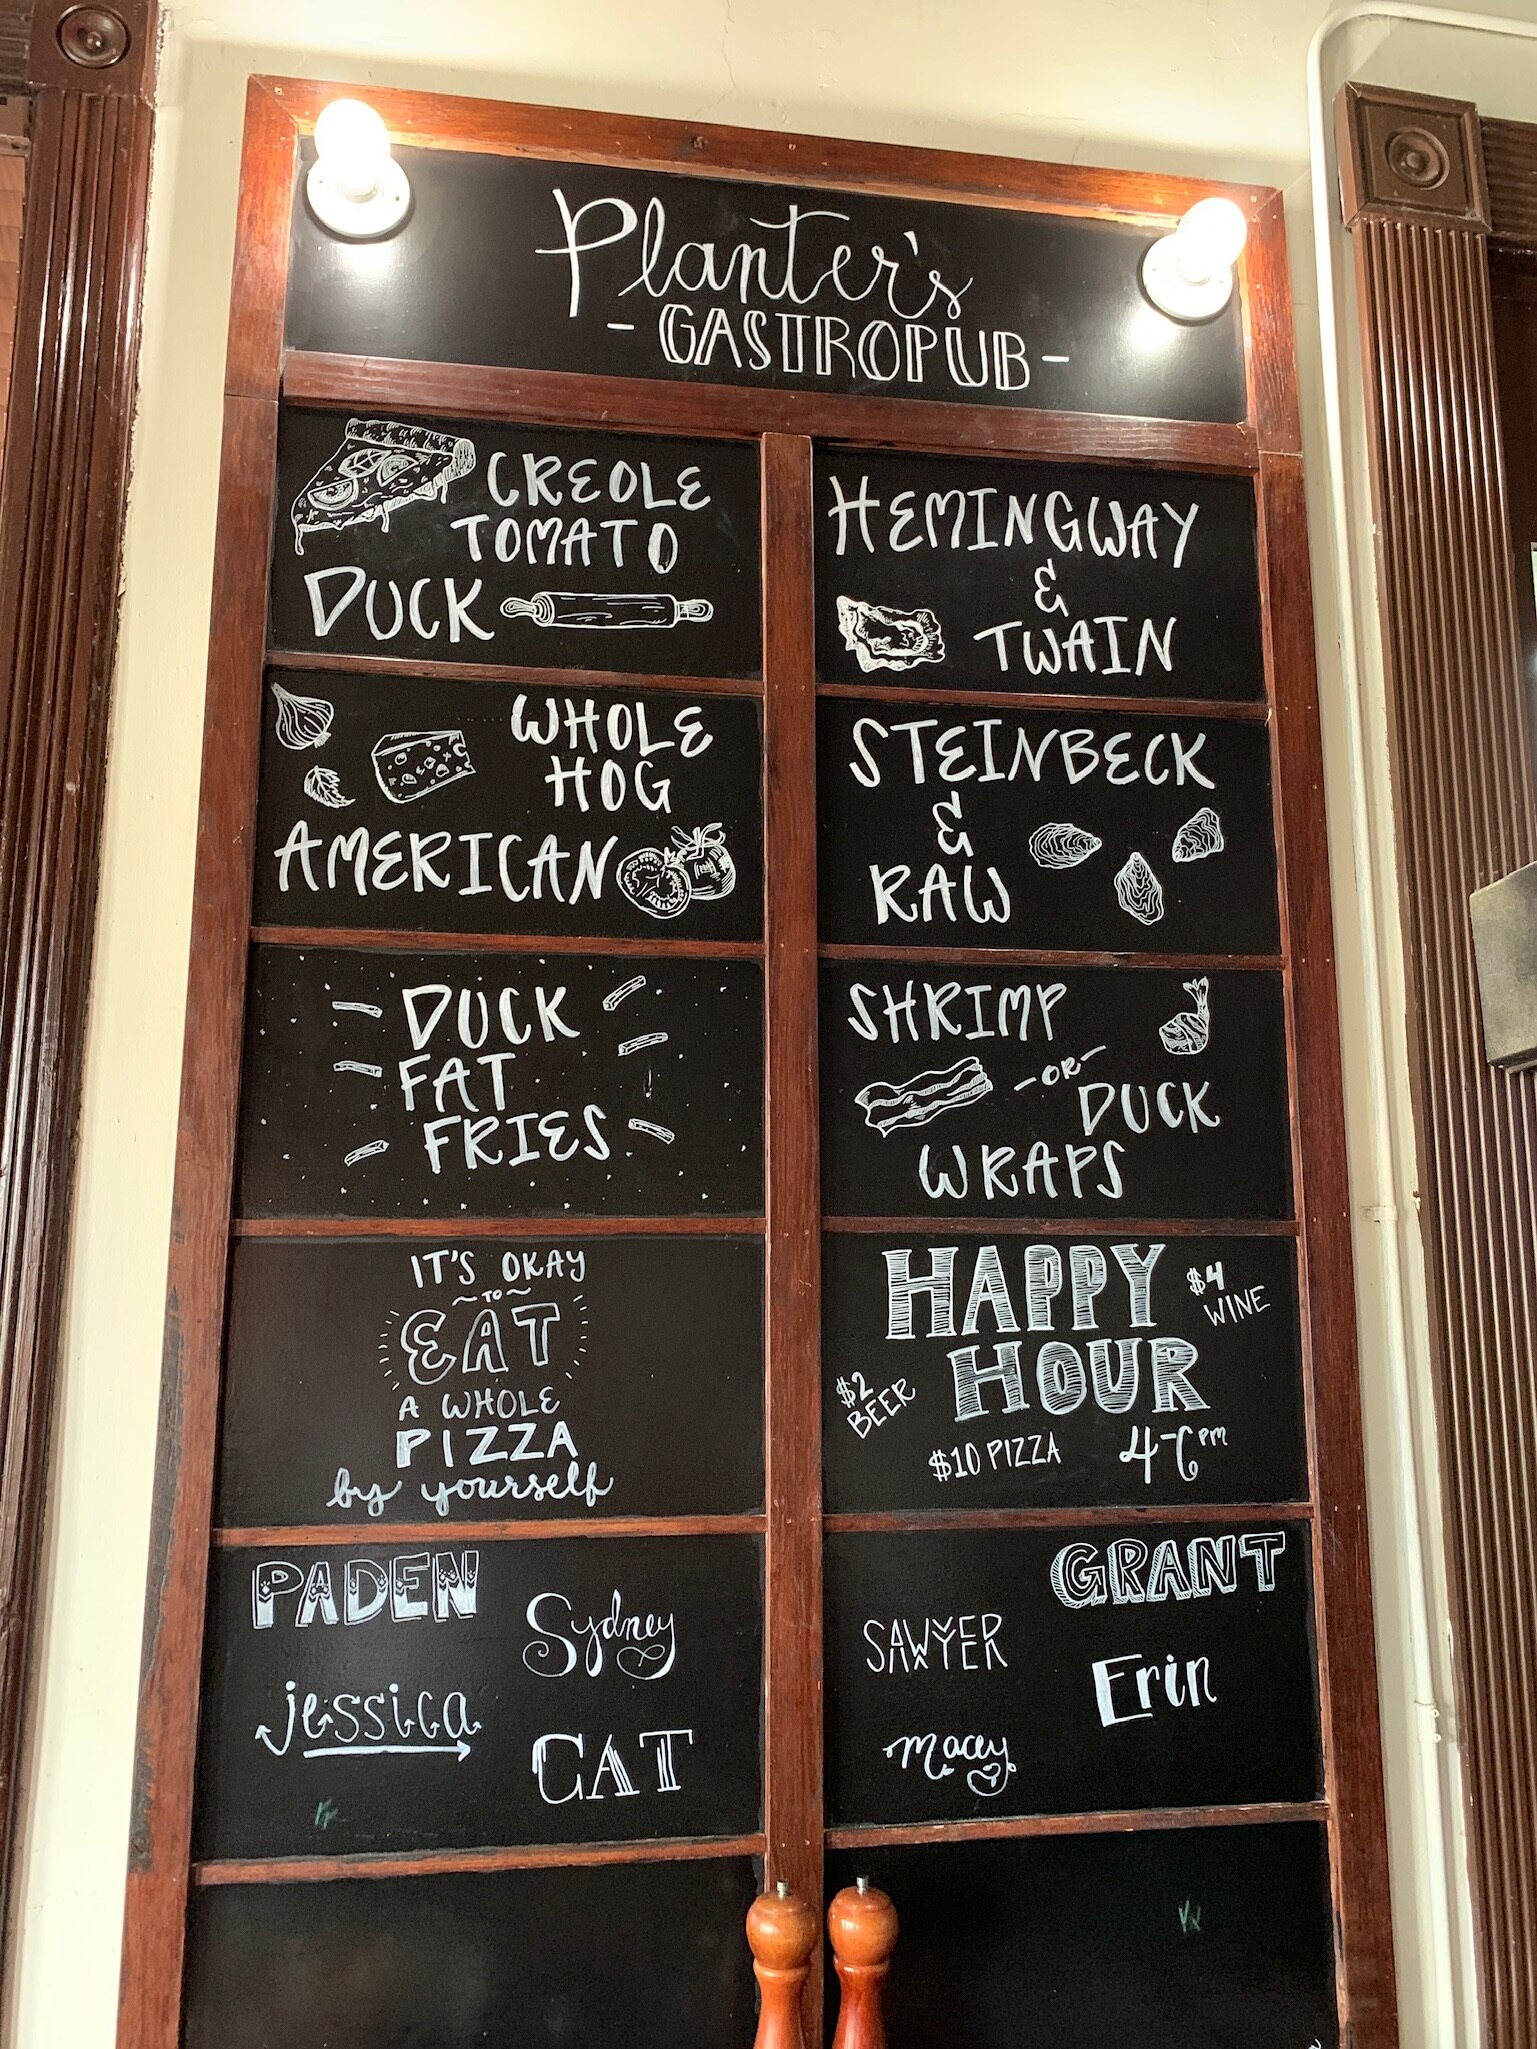 Planter's
- GASTROPUB -
CREOLE
TOMATO
DUCK
WHOLE
HOG
AMERICAN
DUCK
FAT
FRIES
IT'S OKAY
~TO~
EAT
A WHOLE
PIZZA
by yourself
PADEN
Sydney
jessica
CAT
HEMINGWAY
&
TWAIN
STEINBECK
&
RAW
SHRIMP
-OR-
DUCK
WRAPS
HAPPY
HOUR
$4
WINE
$2
BEER
$10 PIZZA
4-6pm
GRANT
SAWYER
Erin
Macey